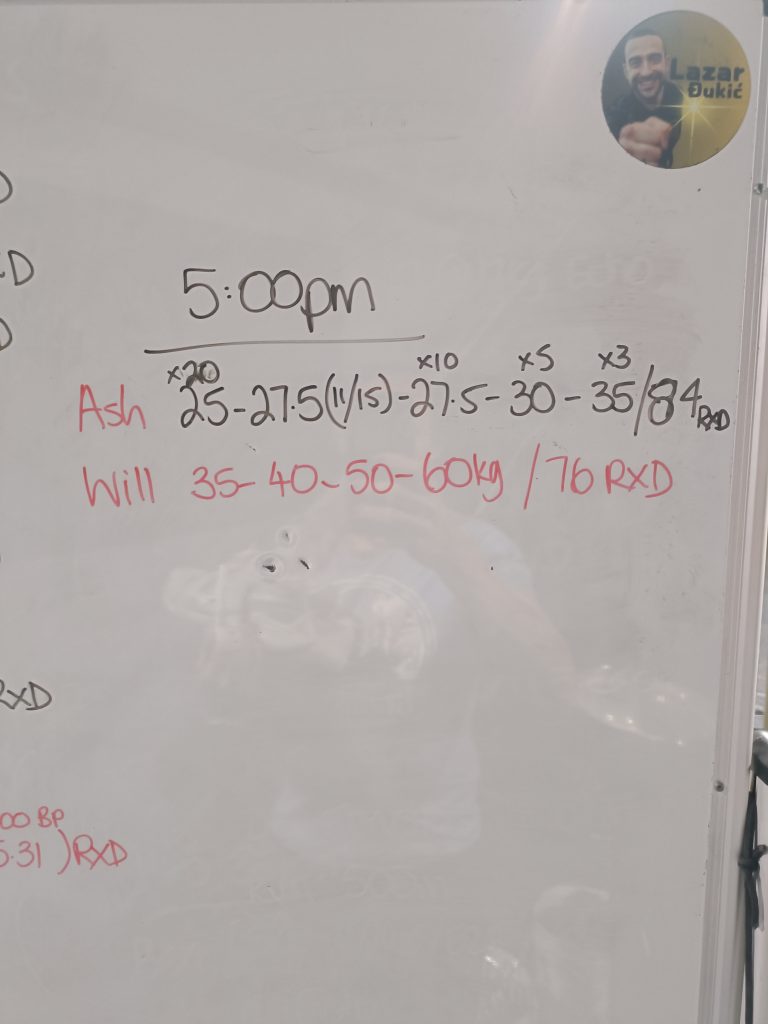 Lazar
Đukić
D
D
D
5:00pm
x20 x10 x5 x3
Ash 25-27.5(11/15)-27.5-30-35/84 RXD
Will 35-40-50-60kg/76 RXD
RXD
00 BP
5.31) RXD